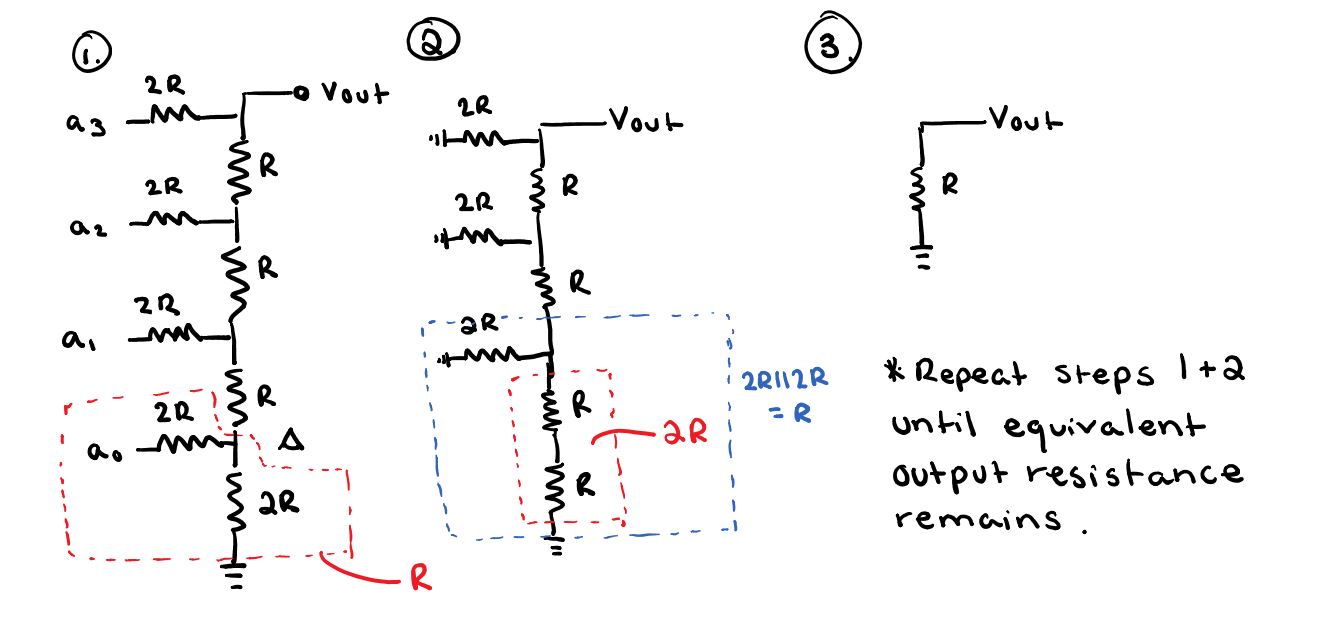 1.
2R
Vout
a3
R
2R
a2
R
2R
a1
R
2R
a0
Δ
2R
R
2
2R
Vout
R
2R
R
2R
R
2R
R
2R||2R
= R
3.
Vout
R
* Repeat steps 1+2
until equivalent
output resistance
remains.